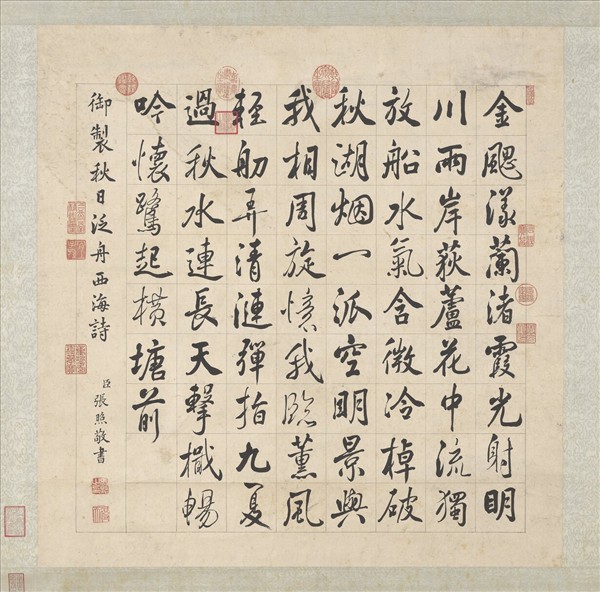 金颸漾蘭渚霞光射明
川兩岸荻蘆花中流獨
放船水氣含微冷棹破
秋湖烟一派空明景與
我相周旋憶我臨薰風
輕舠弄清漣彈指九夏
過秋水連長天擊檝暢
吟懷鷺起橫塘前
御製秋日泛舟西海詩
臣張照敬書